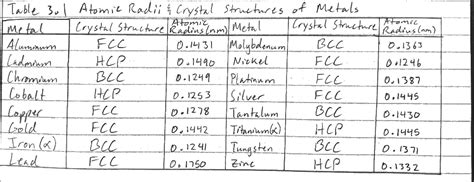 Table 3.1 Atomic Radii & Crystal Structures of Metals
Metal Crystal Structure Atomic Radius(nm) Metal Crystal Structure Atomic Radius(nm)
Aluminum FCC 0.1431 Molybdenum BCC 0.1363
Cadmium HCP 0.1490 Nickel FCC 0.1246
Chromium BCC 0.1249 Platinum FCC 0.1387
Cobalt HCP 0.1253 Silver FCC 0.1445
Copper FCC 0.1278 Tantalum BCC 0.1430
Gold FCC 0.1442 Titanium(α) HCP 0.1445
Iron(α) BCC 0.1241 Tungsten BCC 0.1371
Lead FCC 0.1750 Zinc HCP 0.1332